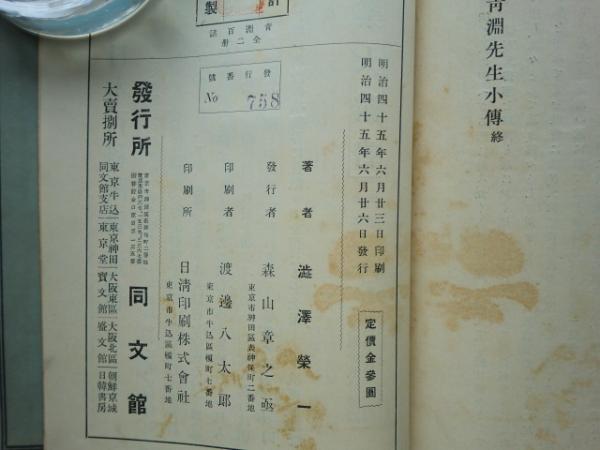 青淵先生小傳 終
明治四十五年六月廿三日印刷
明治四十五年六月廿六日發行
定價金參圓
製
青淵百話
全二册
發行番號
No 758
著者 澁澤榮一
發行者 森山章之丞
東京市神田區表神保町二番地
印刷者 渡邊八太郎
東京市牛込區榎町七番地
印刷所 日清印刷株式會社
東京市牛込區榎町七番地
發行所 同文館
大賣捌所
東京牛込 同文館支店
東京神田 東京堂
大阪東區 寶文館
大阪北區 盛文館
朝鮮京城 日韓書房